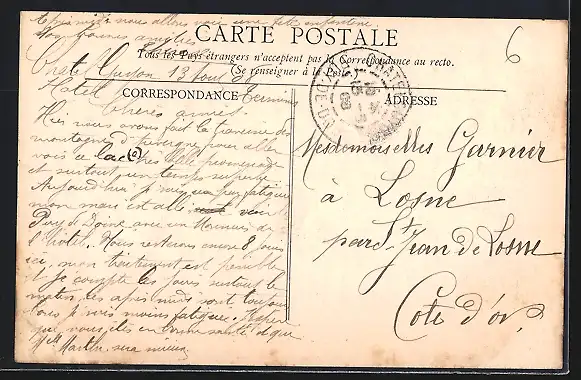 Après midi nous allons voir une fête enfantine
Vos bonnes amies
CARTE POSTALE
Tous les Pays étrangers n'acceptent pas la Correspondance au recto.
(Se renseigner à la Poste)
Chatel Guyon 13 Aout
Hotel Terminus
CORRESPONDANCE
ADRESSE
Chères amies
Hier nous avons fait la traversée des
montagnes d'Auvergne pour aller
voir ce lac (a) très belle promenade
et surtout un temps superbe
Aujourd'hui je suis un peu fatiguée
mon mari est allé voir le
Puy de Dôme avec un Monsieur de
l'hôtel. Nous resterons encore 8 jours
ici, mon traitement est pénible
et je compte les jours surtout le
matin, les après midi sont toujours
bons je suis moins fatiguée. J'espère
que vous êtes en bonne santé et que
Melle Martin sera mieux
Mesdemoiselles Garnier
à Losne
par St Jean de Losne
Cote d'Or
6